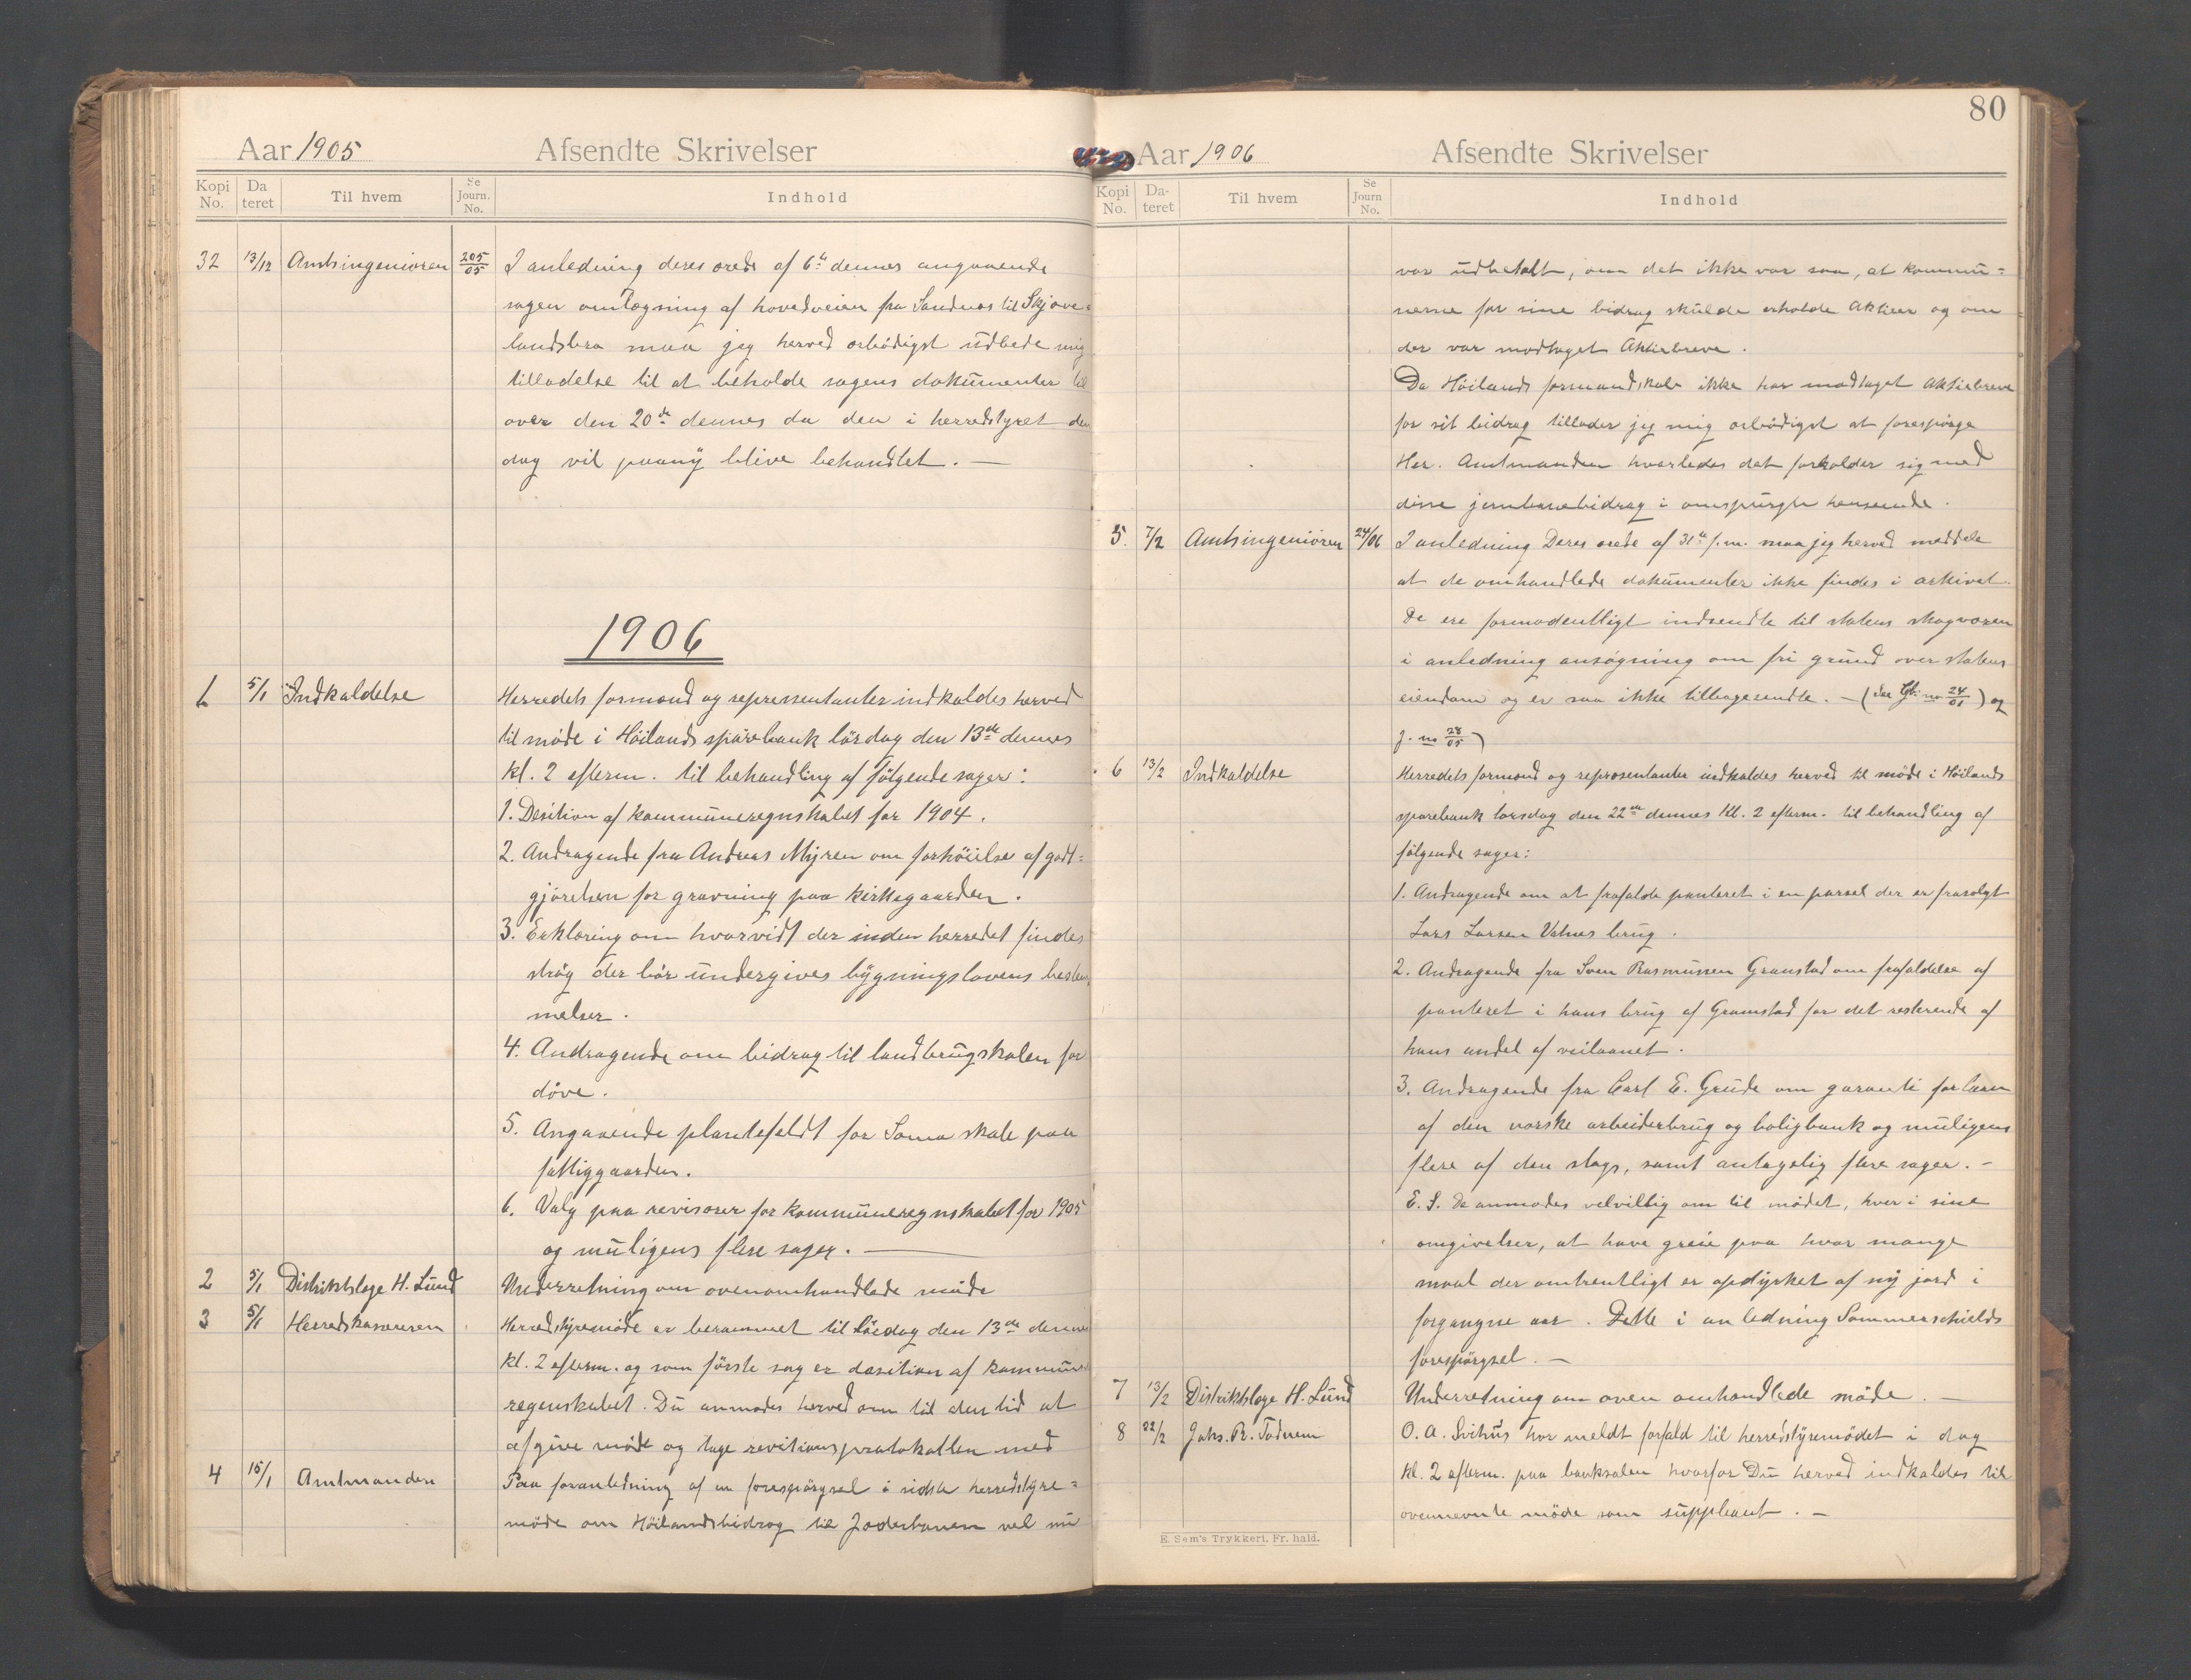 Aar 1905 Afsendte Skrivelser
Kopi No. Da teret Til hvem Se Journ. No. Indhold
32 13/12 Amtsingeniøren 205/05 I anledning deres ærede af 6te dennes angaaende
sagen omlægning af hovedveien fra Sandnes til Skjæve-
landsbro maa jeg herved ærbödigst udbede mig
tilladelse til at beholde sagens dokumenter til
over den 20de dennes da den i herredstyret den
dag vil paany blive behandlet. —
1906
1 5/1 Indkaldelse Herredets formænd og repræsentanter indkaldes herved
til möde i Höilands sparebank lördag den 13de dennes
kl. 2 efterm. til behandling af fölgende sager:
1. Desition af kommuneregnskabet for 1904.
2. Andragende fra Andreas Myren om forhöielse af godt-
gjörelsen for gravning paa kirkegaarden.
3. Erklæring om hvorvidt der inden herredet findes
strög der bör undergives bygningslovens bestem-
melser.
4. Andragende om bidrag til landbrugskolen for
döve.
5. Angaaende plantefeldt for Soma skole paa
fattiggaarden.
6. Valg paa revisorer for kommuneregnskabet for 1905
og muligens flere sager. —
2 5/1 Distriktslæge H. Lund Underretning om ovenomhandlede möde
3 5/1 Herredskasereren Herredstyremöde er berammet til Lördag den 13de dennes
kl. 2 efterm. og som förste sag er desition af kommune
regenskabet. Du anmodes herved om til den tid at
afgive möde og tage revitionsprotokollen med
4 15/1 Amtmanden Paa foranledning af en forespörgsel i sidste herredstyre-
möde om Höilandsbidrag til Jæderbanen vel nu
80
Aar 1906 Afsendte Skrivelser
Kopi No. Da- teret Til hvem Se Journ No. Indhold
var udbetalt, om det ikke var saa, at kommu-
nerne for sine bidrag skulde erholde Aktier og om
der var modtaget Aktiebreve.
Da Höilands formandskab ikke har modtaget aktiebreve
for sit bidrag tillader jeg mig ærbödigst at forespörge
Her. Amtmanden hvorledes det forholder sig med
disse jernbanebidrag i omspurgte henseende.
5. 7/2 Amtsingeniören 24/06 I anledning Deres ærede af 31te f.m. maa jeg herved meddele
at de omhandlede dokumenter ikke findes i arkivet.
De ere formodentligt indsendte til statens skogvæsen
i anledning ansögning om fri grund over statens
eiendom og er saa ikke tilbagesendte. — (See no 24/01) og
j. no 28/05)
6 13/2 Indkaldelse Herredets formænd og repræsentanter indkaldes herved til möde i Höilands
sparebank torsdag den 22de dennes kl. 2 efterm. til behandling af
fölgende sager:
1. Andragende om at frafalde panteret i en parsel der er frasolgt
Lars Larsen Vatnes brug.
2. Andragende fra Sven Rasmussen Gramstad om frafaldelse af
panteret i hans brug af Gramstad for det resterende af
hans andel af veilaanet.
3. Andragende fra Carl E. Grude om garanti for laan
af den norske arbeiderbrug og boligbank og muligens
flere af den slags, samt antagelig flere sager. –
E. S. De anmodes velvillig om til mödet, hver i sine
omgivelser, at have greie paa hvor mange
maal der omtrentligt er opdyrket af ny jord i
forgangne aar. Dette i anledning Sommerschields
forespörgsel. —
7 13/2 Distriktslæge H. Lund Underretning om oven omhandlede möde. —
8 22/2 Johs. R. Tödnem O. A. Svihus har meldt forfald til herredstyremödet i dag
kl. 2 efterm. paa banksalen hvorfor Du herved indkaldes til
ovennevnte möde som suppleant. —
E. Sem's Trykkeri, Fr. hald.